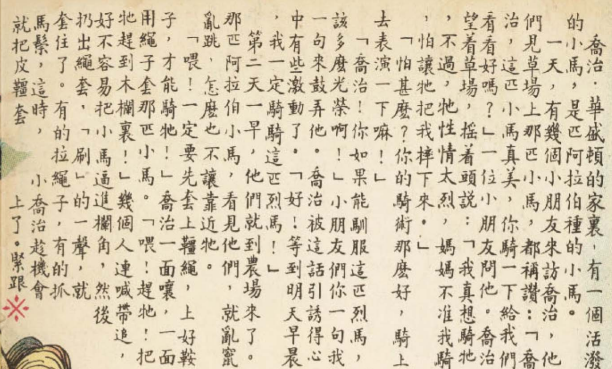 喬治．華盛頓的家裏，有一個活潑
的小馬，是匹阿拉伯種的小馬。
一天，有幾個小朋友來訪喬治，他
們見草場上那匹小馬，都稱讚：「喬
治，這匹小馬真美，你騎一下給我們
看看好嗎？」一位小朋友問他。喬治
望着草場，搖着頭說：「我真想騎牠
，不過，牠性情太烈，媽媽不准我騎
，怕讓牠把我摔下來。」
「怕甚麽？你的騎術那麽好，騎上
去表演一下嘛！」
「喬治！你如果能馴服這匹烈馬，
該多麽光榮啊！」小朋友們你一句我
一句來鼓弄他。喬治被這話引誘得心
中有些激動了。「好！等到明天早晨
，我一定騎騎這匹烈馬！」
第二天一早，他們就到農場來了。
那匹阿拉伯小馬，看見他們，就亂竄
亂跳，怎麽也不讓靠近牠。
「喂！一定要先套上韁繩，上好鞍
子，才能騎牠！」喬治一面嚷，一面
用繩子套那匹小馬。「喂！趕牠！把
牠趕到木欄裏！」幾個人連喊帶追，
好不容易把小馬逼進欄角，然後
扔出繩套，「刷」的一聲，就
套住了。有的拉繩子，有的抓
馬鬃，這時，小喬治趁機會
就把皮韁套上了。緊跟